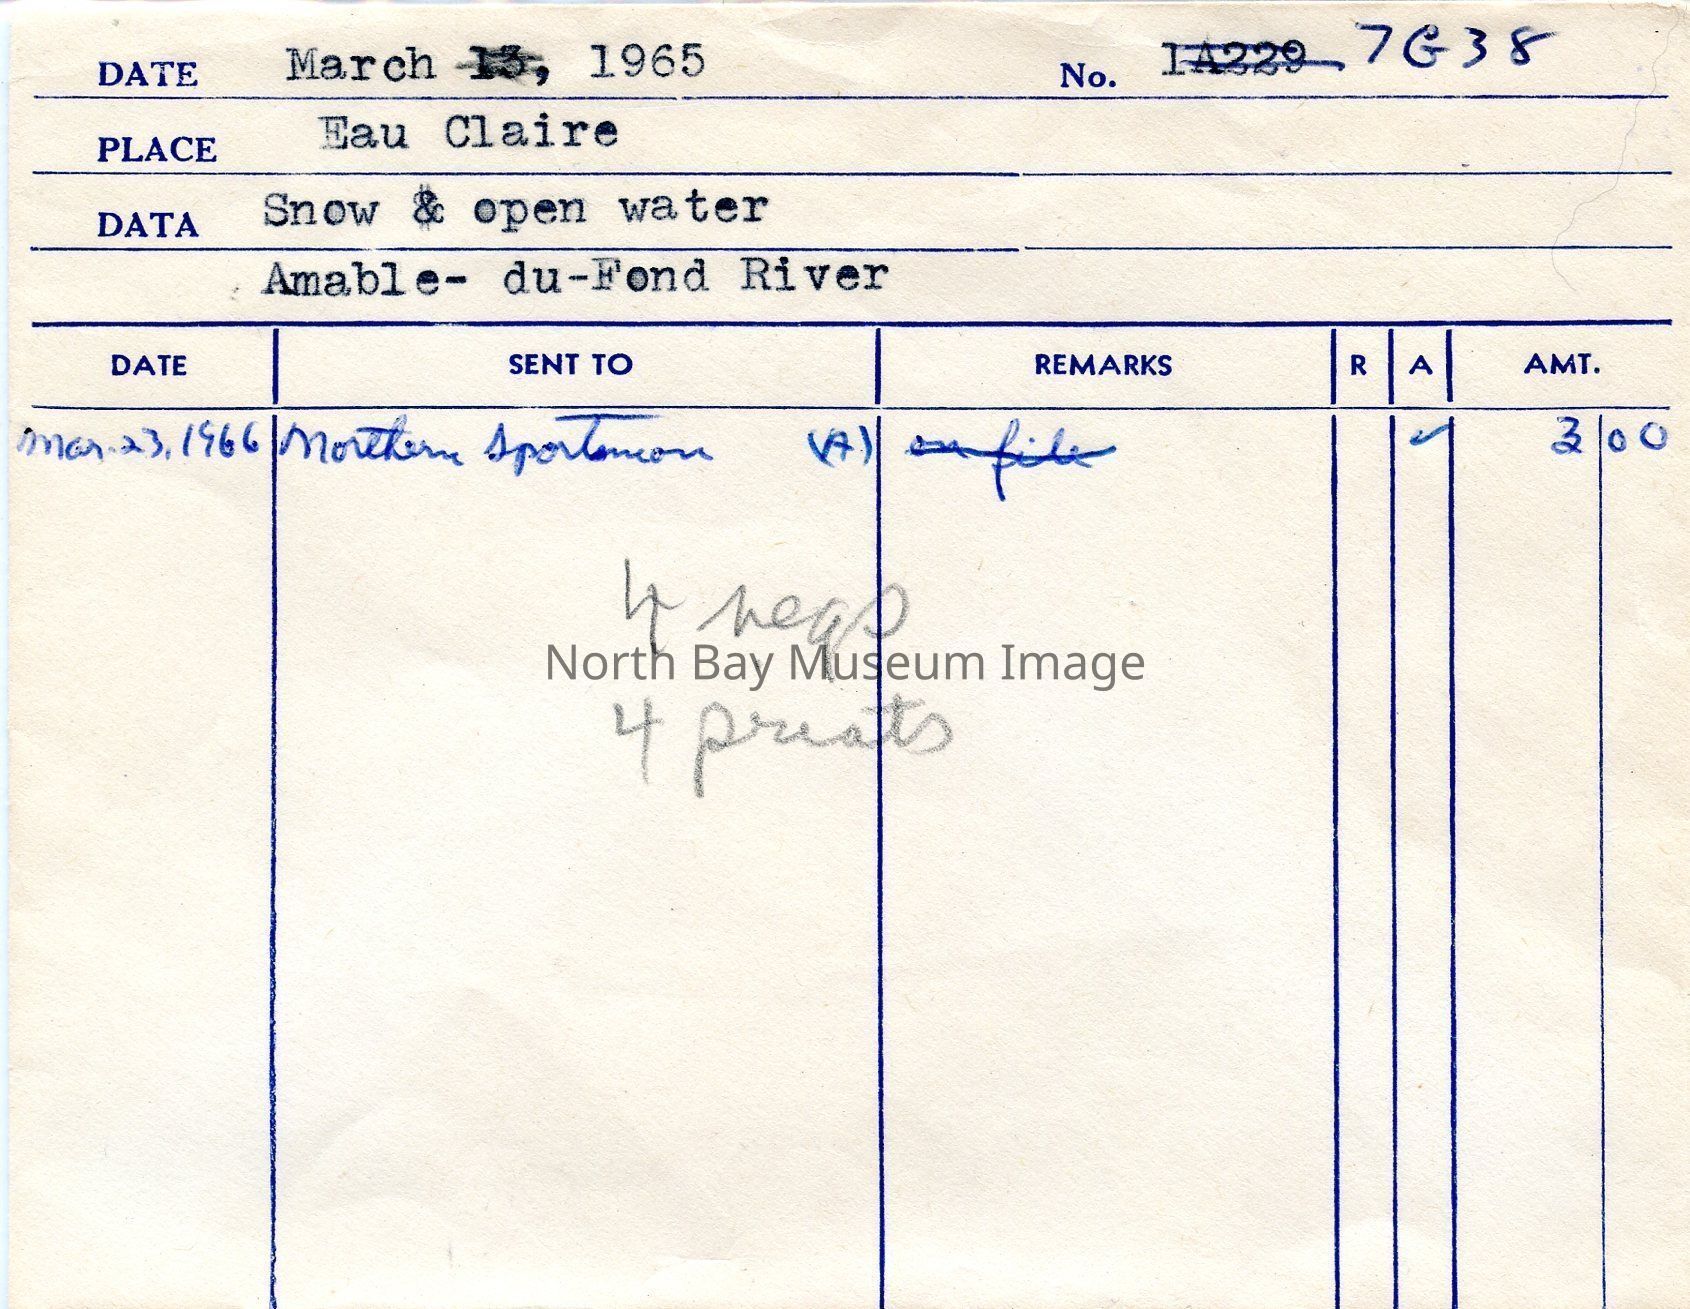 DATE March 13, 1965 No. 1A229 7G38
PLACE Eau Claire
DATA Snow & open water
Amable- du-Fond River
DATE SENT TO REMARKS R A AMT.
Mar. 23, 1966 Northern Sportsman (A) on file ✓ 3 00
4 negs
North Bay Museum Image
4 prints